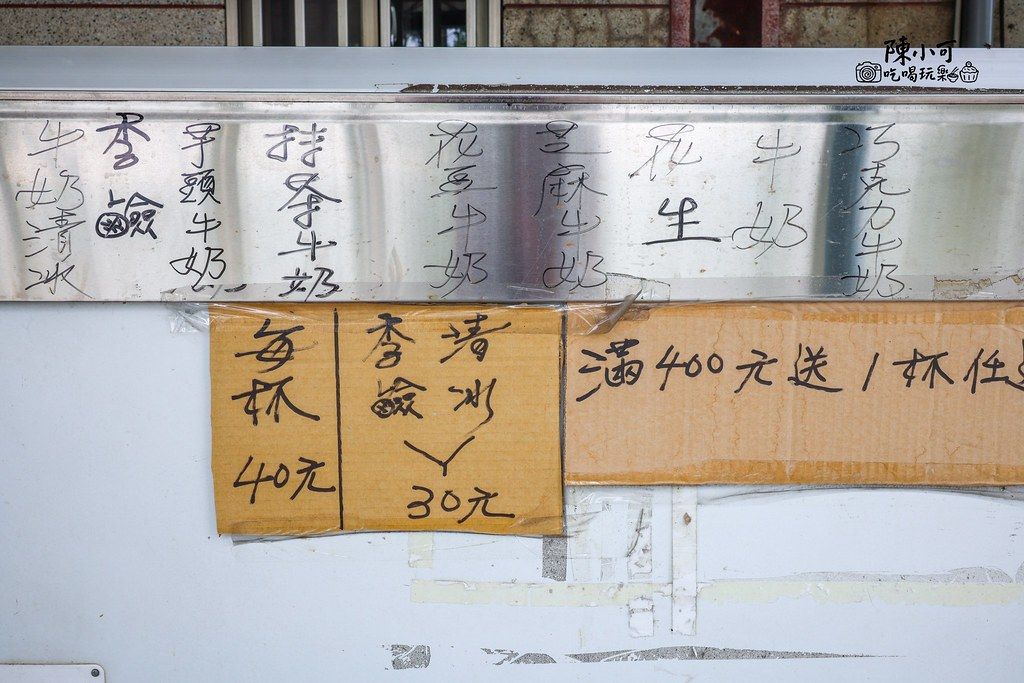 陳小可
吃喝玩樂
牛奶清冰
李鹼
芋頭牛奶
抹茶牛奶
花豆牛奶
芝麻牛奶
花生
牛奶
巧克力牛奶
每杯
40元
李鹼
清冰
30元
滿400元送1杯任